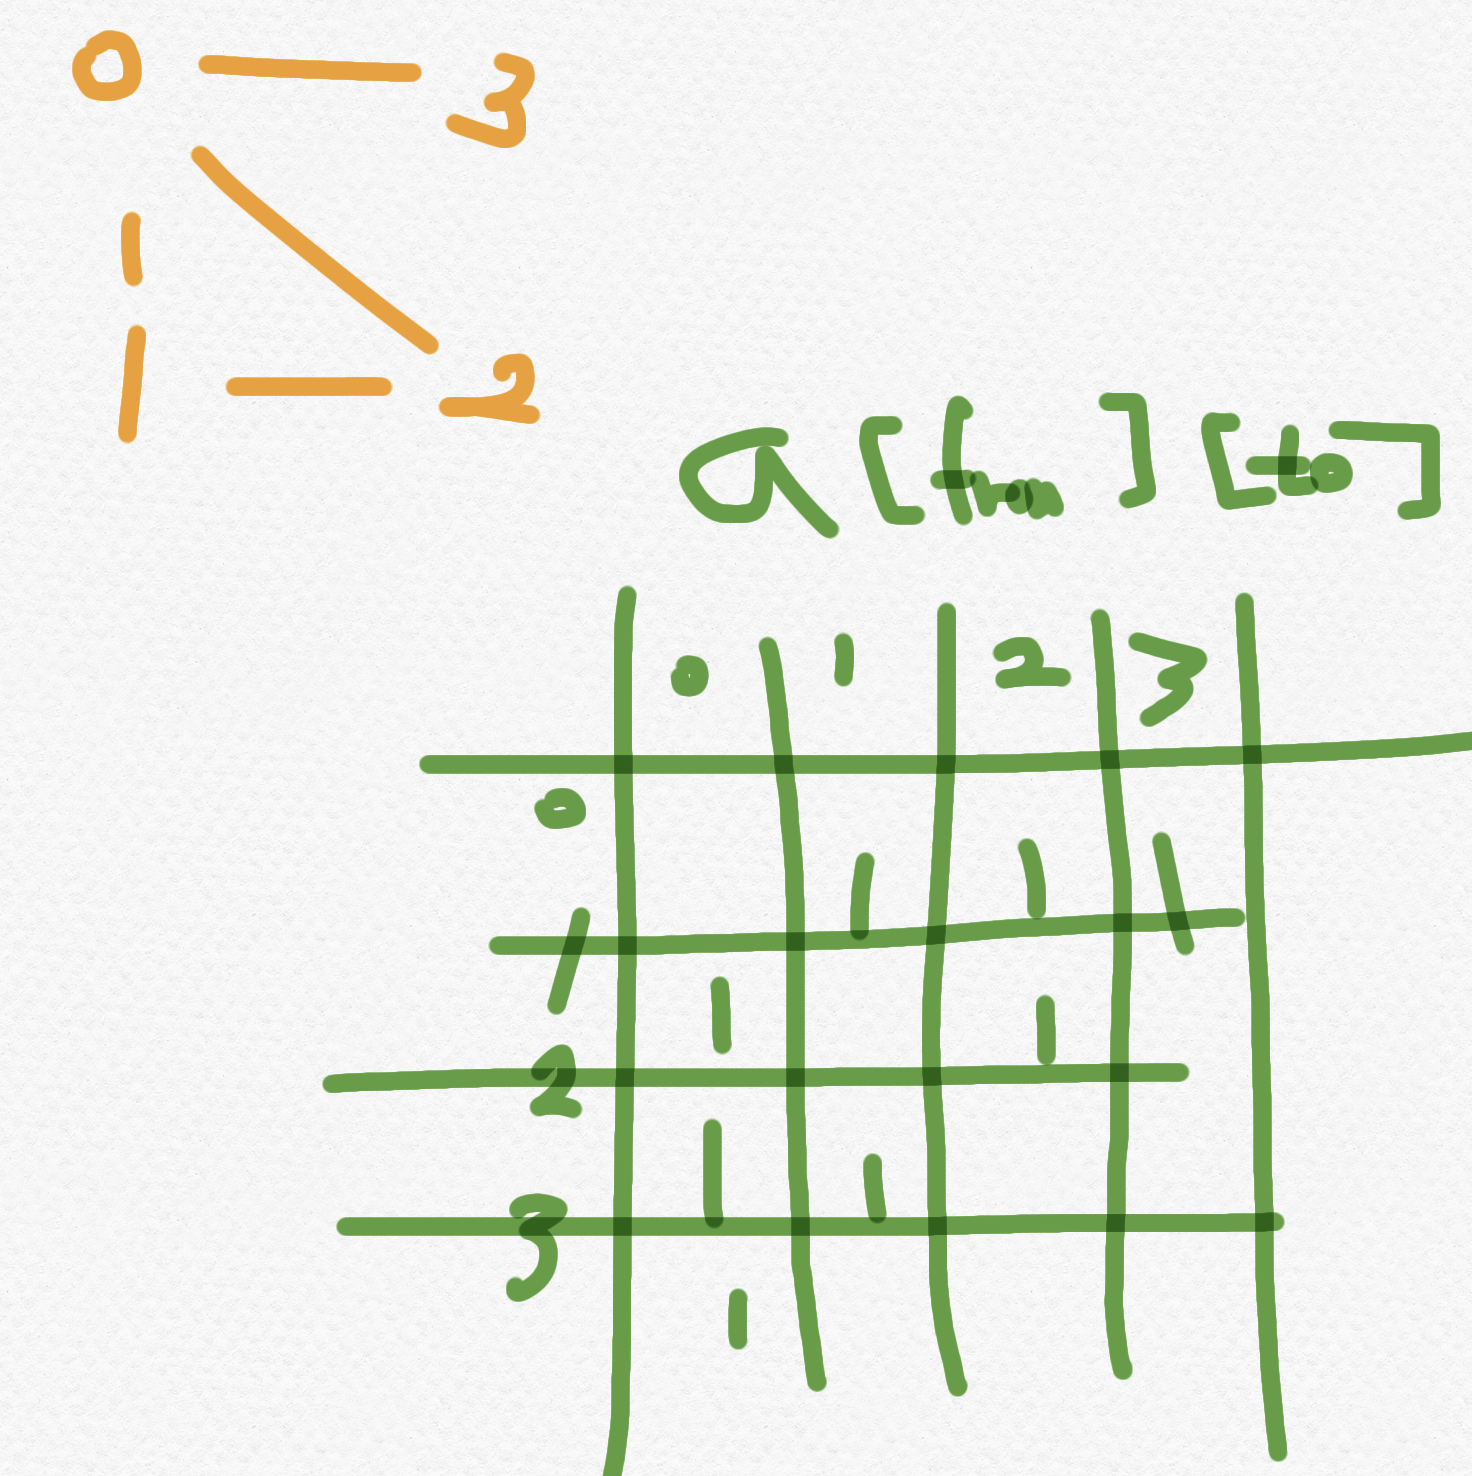 0 3
1 2
a[from][to]
0 1 2 3
0 1 1 1
1 1 1
2 1 1
3 1